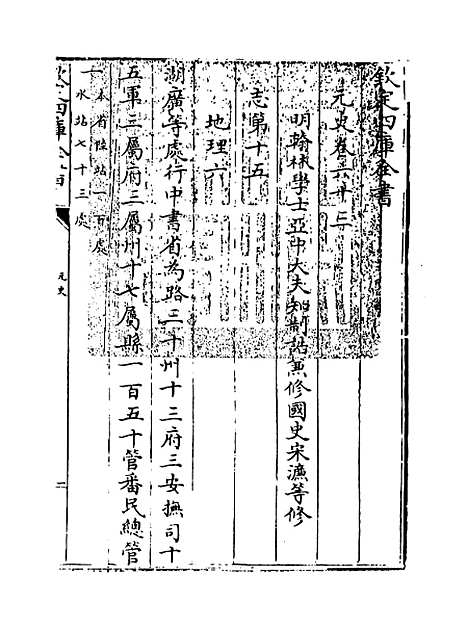 欽定四庫全書
元史卷六十三
明翰林學士亞中大夫知制誥兼修國史宋濂等修
志第十五
地理六
湖廣等處行中書省為路三十州十三府三安撫司十
五軍三屬府三屬州十七屬縣一百五十管番民總管
一
本省陸站一百處
水站七十三處
元史